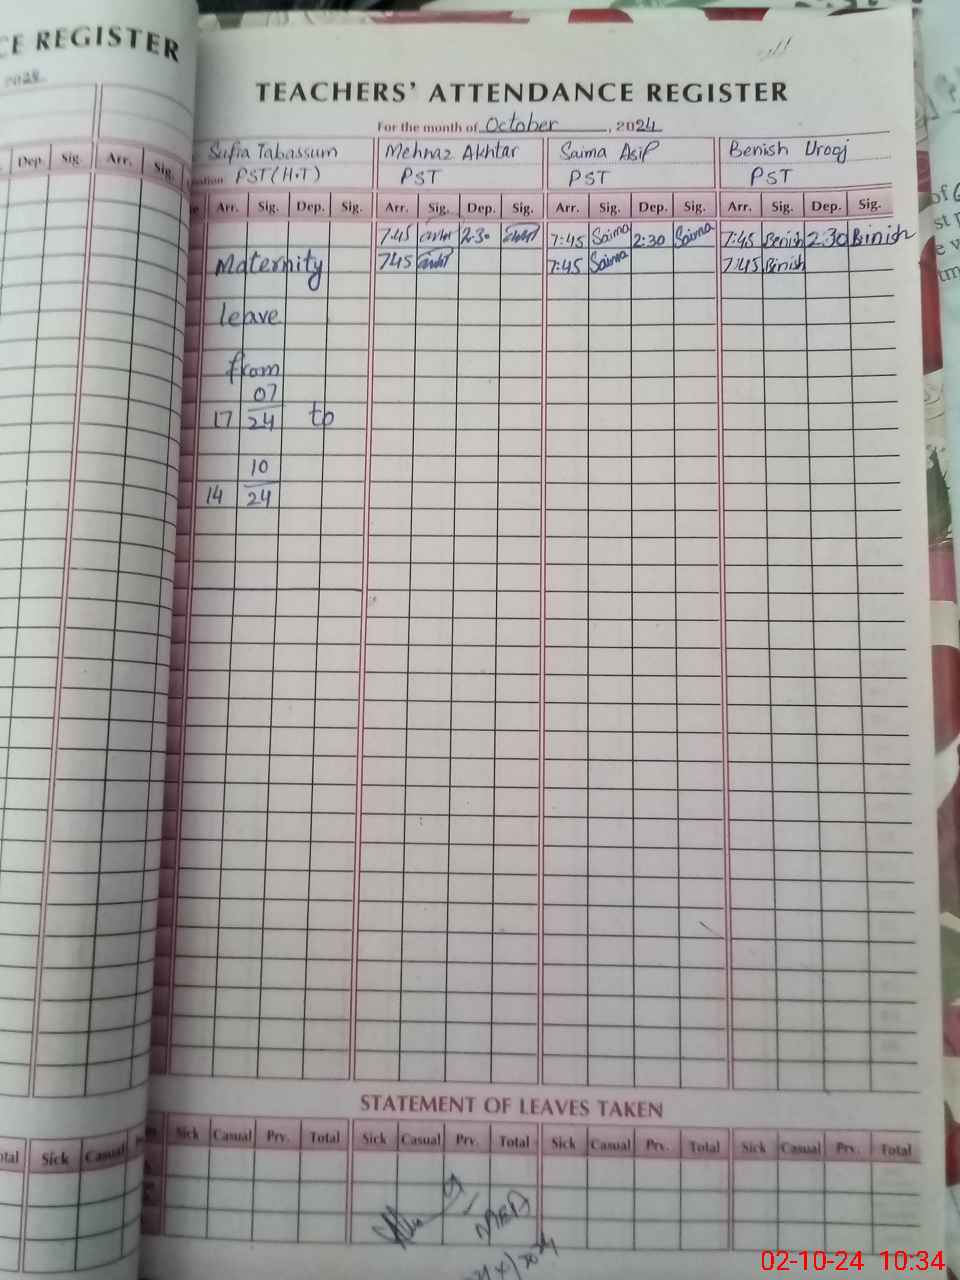 CE REGISTER
TEACHERS' ATTENDANCE REGISTER
For the month of October, 2024
Sufia Tabassum Mehnaz Akhtar Saima Asif Benish Urooj
PST (H.T) PST PST PST
Dep. Sig. Arr. Sig. Arr. Sig. Dep. Sig. Arr. Sig. Dep. Sig. Arr. Sig. Dep. Sig. Arr. Sig. Dep. Sig.
7:45 2:30 7:45 Saima 2:30 Saima 7:45 Benish 2:30 Binish
Maternity 745 7:45 Saima 7:45 Binish
leave
from
07
17 24 to
10
14 24
STATEMENT OF LEAVES TAKEN
Sick Casual Prv. Total Sick Casual Prv. Total Sick Casual Prv. Total Sick Casual Prv. Total
otal Sick Casual
02-10-24 10:34